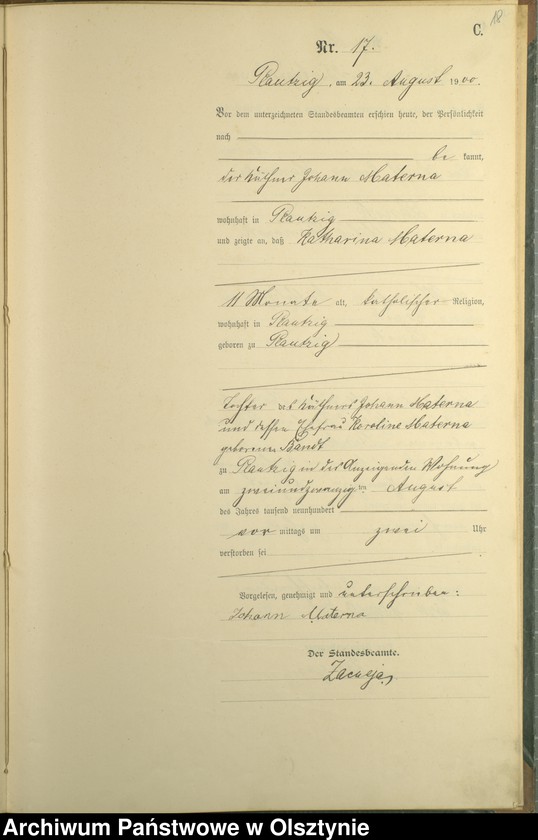 18
C.
Nr. 17.
Plautzig, am 23. August 1900.
Vor dem unterzeichneten Standesbeamten erschien heute, der Persönlichkeit
nach
be kannt,
der Käthner Johann Materna
wohnhaft in Plautzig
und zeigte an, daß Katharina Materna
11 Monate alt, katholischer Religion,
wohnhaft in Plautzig
geboren zu Plautzig
Tochter des Käthners Johann Materna
und dessen Ehefrau Karoline Materna
geborenen Bandt
zu Plautzig in des Anzeigenden Wohnung
am zweiundzwanzigten August
des Jahres tausend neunhundert
vor mittags um zwei Uhr
verstorben sei
Vorgelesen, genehmigt und unterschrieben:
Johann Materna
Der Standesbeamte.
Archiwum Państwowe w Olsztynie